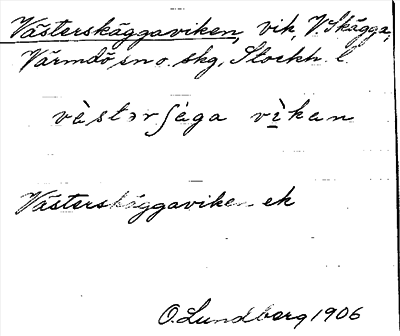 Västerskäggaviken, vik, V. Skägga,
Värmdö sn o. skg, Stockh. l.
vȧ̀stərʃȧga vìkan
Västerskäggaviken ek
O. Lundberg 1906